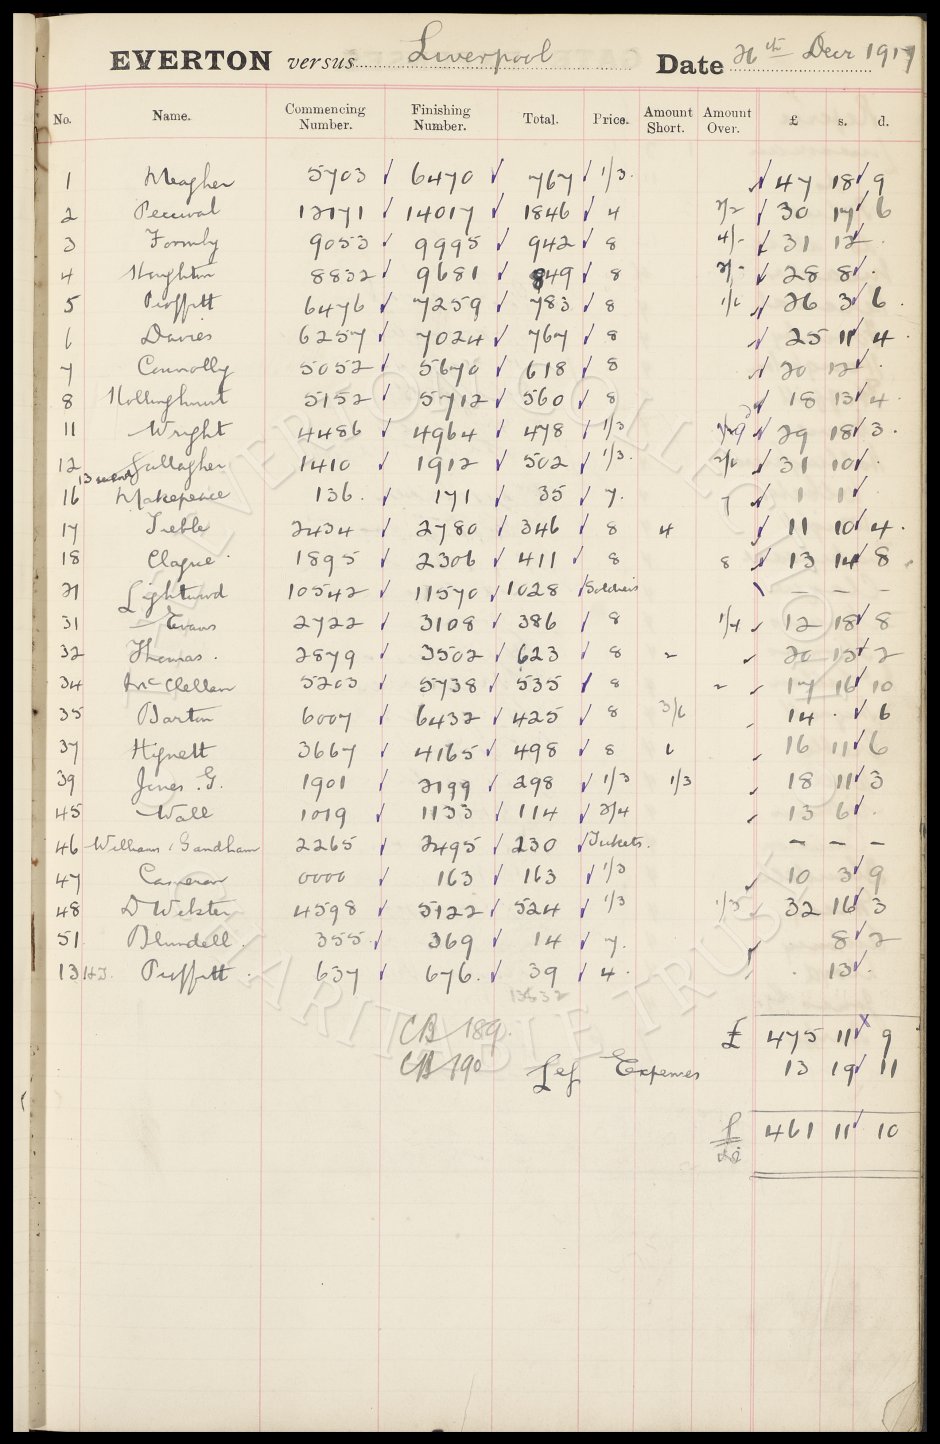 EVERTON versus Liverpool Date 26th Decr 1917
No. Name. Commencing Number. Finishing Number. Total. Price. Amount Short. Amount Over. £ s. d.
1 Meagher 5703 6470 767 1/3. 47 18 9
2 Percival 12171 14017 1846 4 2/2 30 17 6
3 Formby 9053 9995 942 8 4/- 31 12 .
4 Houghton 8832 9681 849 8 2/- 28 8 .
5 Proffitt 6476 7259 783 8 1/6 26 3 6.
6 Davies 6257 7024 767 8 25 11 4
7 Connolly 5052 5670 618 8 20 12 .
8 Hollinghurst 5152 5712 560 8 18 13 4.
11 Wright 4486 4964 478 1/3 29 18 3.
12 Gallagher 1410 1912 502 1/3. 2/6 31 10 .
16 Makepeace 136. 171 35 7. 7 1 1 .
17 Treble 2434 2780 346 8 4 11 10 4.
18 Clague 1895 2306 411 8 8 13 14 8
21 Lightwood 10542 11570 1028 Soldiers — — —
31 Evans 2722 3108 386 8 1/4 12 18 8
32 Thomas. 2879 3502 623 8 2 20 15 2
34 McClellan 5203 5738 535 8 2 17 16 10
35 Barton 6007 6432 425 8 3/6 14 . 6
37 Hignett 3667 4165 498 8 6 16 11 6
39 Jones. G. 1901 2199 298 1/3 1/3 18 11 3
45 Wall 1019 1133 114 2/4 13 6 .
46 Williams, Sandham 2265 2495 230 Tickets. — — —
47 Cameron 0000 163 163 1/3 10 3 9
48 D Webster 4598 5122 524 1/3 1/3 32 16 3
51 Blundell. 355 369 14 7. 8 2
13 H.T. Proffitt. 637 676. 39 4. . 13 .
13832
CB 189. £ 475 11 9
CB 190 Less Expenses 13 19 11
£ 461 11 10
EVERTON COLLECTION
CHARITABLE TRUST